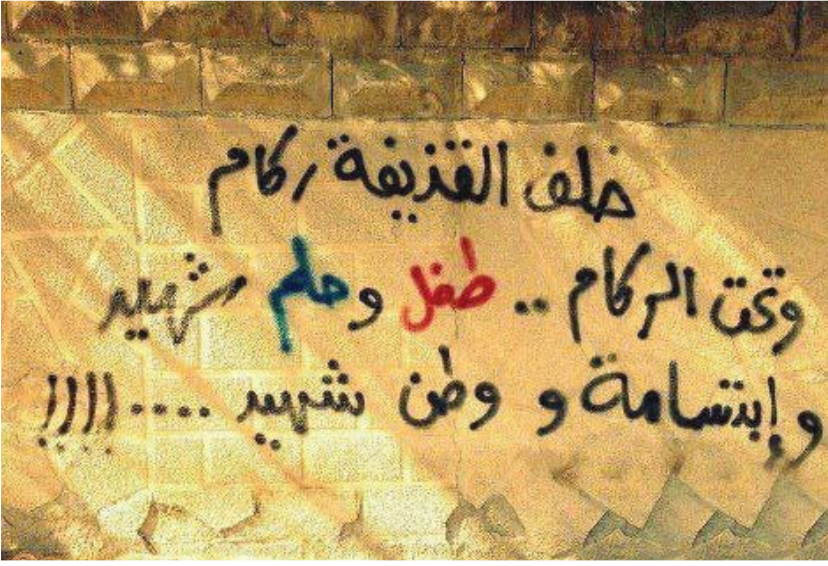 خلف القذيفة ركام
وتحت الركام .. طفل وحلم شهيد
وإبتسامة و وطن شهيد ....!!!!